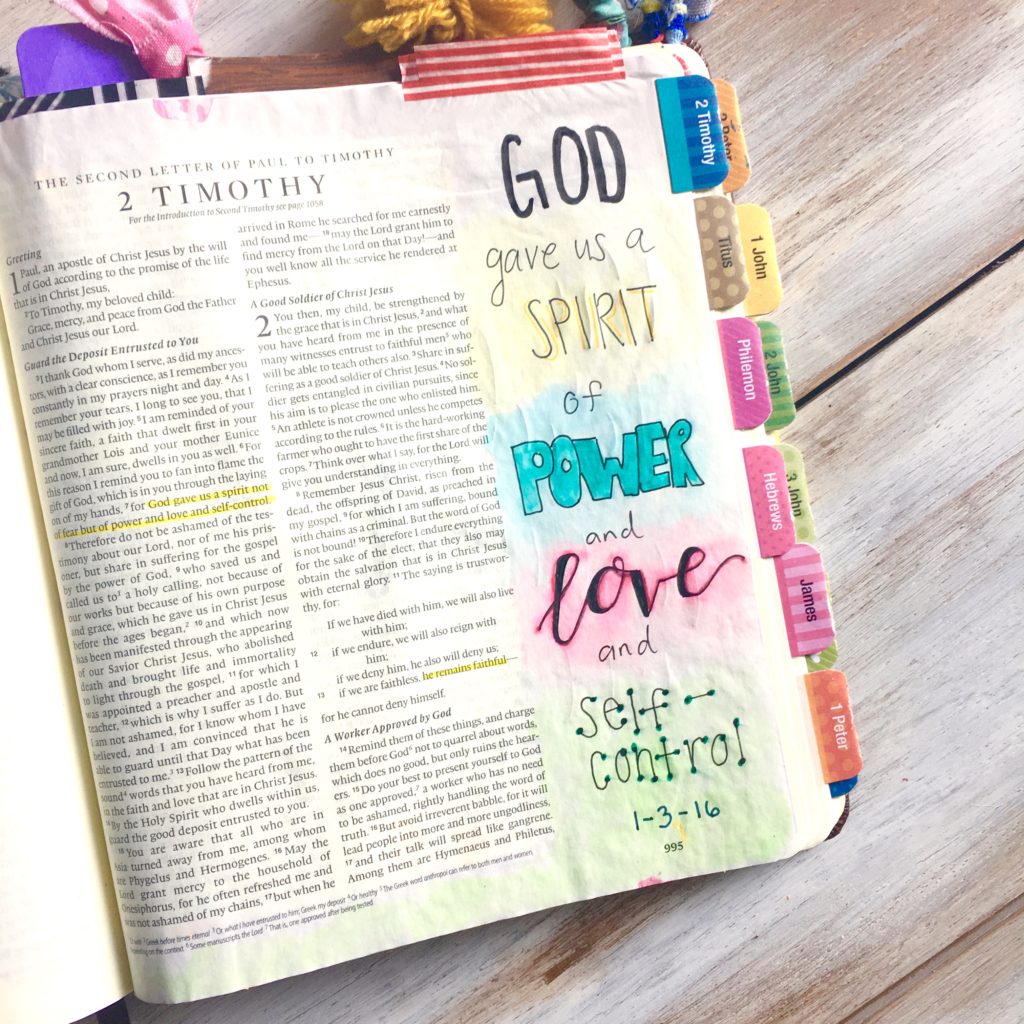 THE SECOND LETTER OF PAUL TO TIMOTHY
2 TIMOTHY
For the Introduction to Second Timothy see page 1058
Greeting
1 Paul, an apostle of Christ Jesus by the will
of God according to the promise of the life
that is in Christ Jesus,
2To Timothy, my beloved child:
Grace, mercy, and peace from God the Father
and Christ Jesus our Lord.
Guard the Deposit Entrusted to You
3I thank God whom I serve, as did my ances-
tors, with a clear conscience, as I remember you
constantly in my prayers night and day. 4As I
remember your tears, I long to see you, that I
may be filled with joy. 5I am reminded of your
sincere faith, a faith that dwelt first in your
grandmother Lois and your mother Eunice
and now, I am sure, dwells in you as well. 6For
this reason I remind you to fan into flame the
gift of God, which is in you through the laying
on of my hands, 7for God gave us a spirit not
of fear but of power and love and self-control.
8Therefore do not be ashamed of the tes-
timony about our Lord, nor of me his pris-
oner, but share in suffering for the gospel
by the power of God, 9who saved us and
called us to1 a holy calling, not because of
our works but because of his own purpose
and grace, which he gave us in Christ Jesus
before the ages began,2 10and which now
has been manifested through the appearing
of our Savior Christ Jesus, who abolished
death and brought life and immortality
to light through the gospel, 11for which I
was appointed a preacher and apostle and
teacher, 12which is why I suffer as I do. But
I am not ashamed, for I know whom I have
believed, and I am convinced that he is
able to guard until that Day what has been
entrusted to me.3 13Follow the pattern of the
sound4 words that you have heard from me,
in the faith and love that are in Christ Jesus.
14By the Holy Spirit who dwells within us,
guard the good deposit entrusted to you.
15You are aware that all who are in
Asia turned away from me, among whom
are Phygelus and Hermogenes. 16May the
Lord grant mercy to the household of
Onesiphorus, for he often refreshed me and
was not ashamed of my chains, 17but when he
arrived in Rome he searched for me earnestly
and found me— 18may the Lord grant him to
find mercy from the Lord on that Day!—and
you well know all the service he rendered at
Ephesus.
A Good Soldier of Christ Jesus
2 You then, my child, be strengthened by
the grace that is in Christ Jesus, 2and what
you have heard from me in the presence of
many witnesses entrust to faithful men5 who
will be able to teach others also. 3Share in suf-
fering as a good soldier of Christ Jesus. 4No sol-
dier gets entangled in civilian pursuits, since
his aim is to please the one who enlisted him.
5An athlete is not crowned unless he competes
according to the rules. 6It is the hard-working
farmer who ought to have the first share of the
crops. 7Think over what I say, for the Lord will
give you understanding in everything.
8Remember Jesus Christ, risen from the
dead, the offspring of David, as preached in
my gospel, 9for which I am suffering, bound
with chains as a criminal. But the word of God
is not bound! 10Therefore I endure everything
for the sake of the elect, that they also may
obtain the salvation that is in Christ Jesus
with eternal glory. 11The saying is trustwor-
thy, for:
If we have died with him, we will also live
with him;
12 if we endure, we will also reign with
him;
if we deny him, he also will deny us;
13 if we are faithless, he remains faithful—
for he cannot deny himself.
A Worker Approved by God
14Remind them of these things, and charge
them before God6 not to quarrel about words,
which does no good, but only ruins the hear-
ers. 15Do your best to present yourself to God
as one approved,7 a worker who has no need
to be ashamed, rightly handling the word of
truth. 16But avoid irreverent babble, for it will
lead people into more and more ungodliness,
17and their talk will spread like gangrene.
Among them are Hymenaeus and Philetus,
2 Greek before times eternal 3 Or what I have entrusted to him; Greek my deposit 4 Or healthy 5 The Greek word anthropoi can refer to both men and women,
depending on the context 6 Some manuscripts the Lord 7 That is, one approved after being tested
GOD
gave us a
SPIRIT
of
POWER
and
love
and
self-
control
1-3-16
995
2 Timothy
2 Peter
Titus
1 John
Philemon
2 John
Hebrews
3 John
James
1 Peter